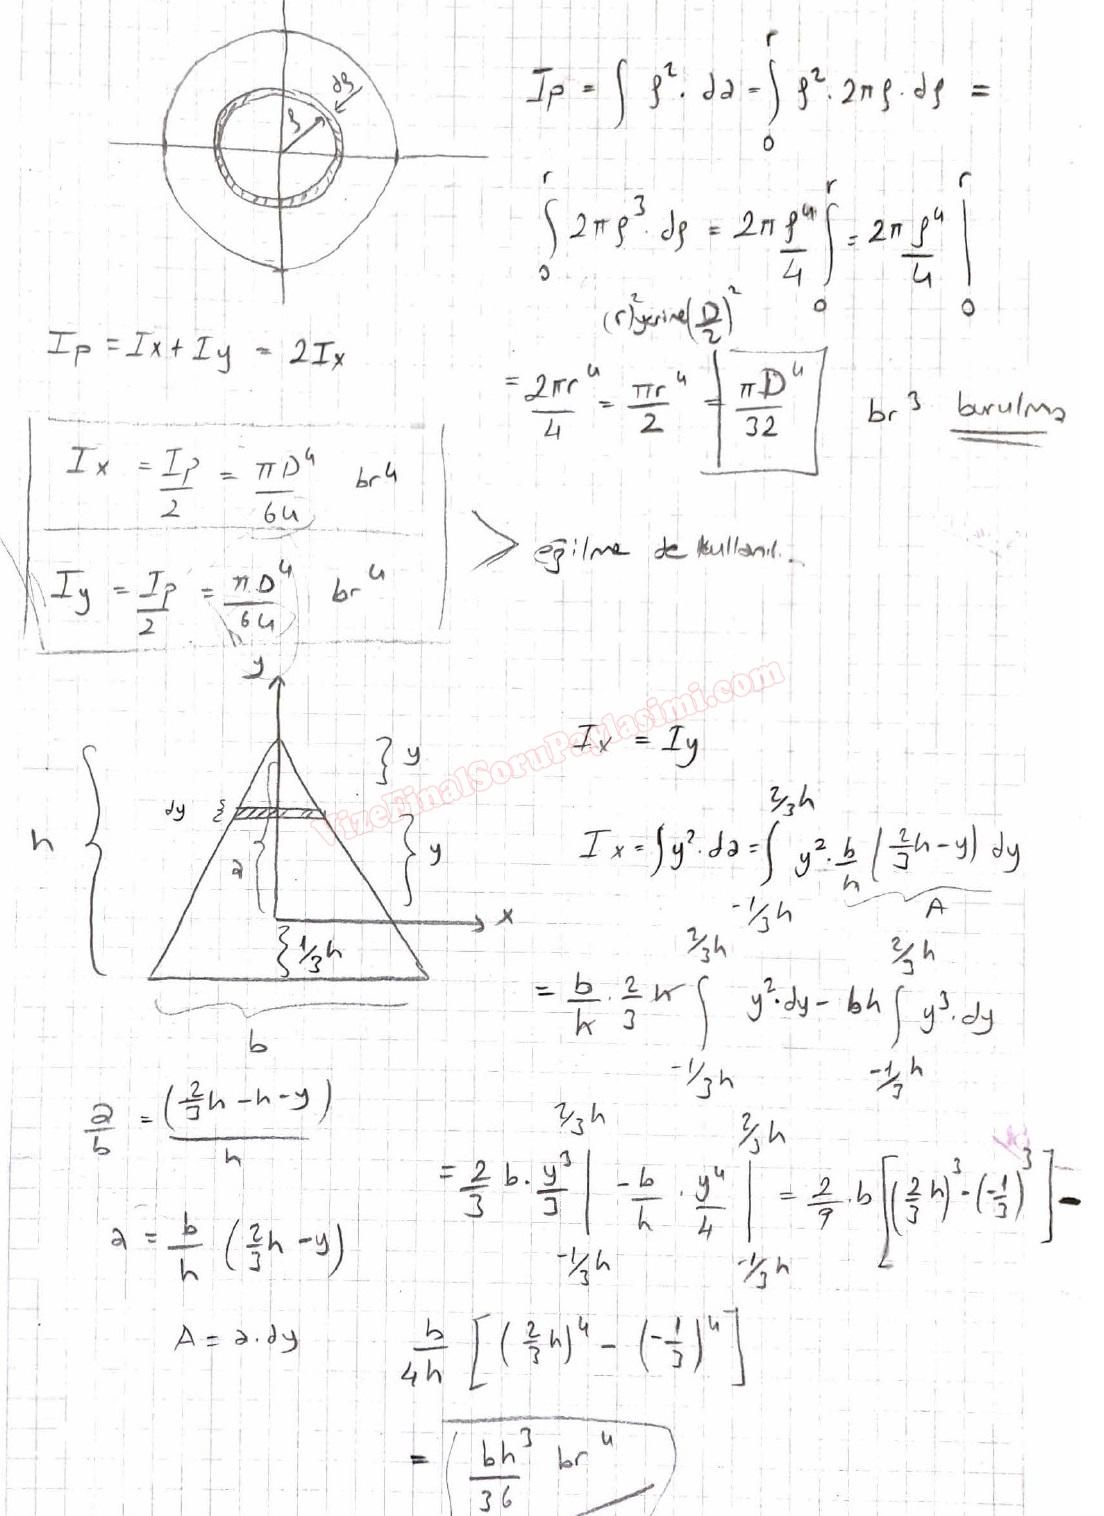 dρ
ρ
Ip = ∫ ρ². da = ∫₀ʳ ρ². 2πρ. dρ =
∫₀ʳ 2πρ³. dρ = 2π ρ⁴/4 ∫₀ʳ = 2π ρ⁴/4 |₀ʳ
(r)² yerine (D/2)²
= 2πr⁴/4 = πr⁴/2 = πD⁴/32 br³ burulma
Ip = Ix + Iy = 2Ix
Ix = Ip/2 = πD⁴/64 br⁴
Iy = Ip/2 = π.D⁴/64 br⁴
> eğilme de kullanıl.
y
h
dy
y
a
y
x
1/3h
b
VizeFinalSoruPaylasimi.com
Ix = Iy
Ix = ∫y². da = ∫_{-1/3h}^{2/3h} y². b/h (2/3h - y) dy
A
= b/h . 2/3 h ∫_{-1/3h}^{2/3h} y². dy - bh ∫_{-1/3h}^{2/3h} y³. dy
a/b = (2/3h - h - y)/h
a = b/h (2/3h - y)
A = a.dy
= 2/3 b. y³/3 |_{-1/3h}^{2/3h} - b/h . y⁴/4 |_{-1/3h}^{2/3h} = 2/9 . b [(2/3 h)³ - (-1/3)³] -
b/4h [(2/3 h)⁴ - (-1/3)⁴]
= bh³/36 br⁴